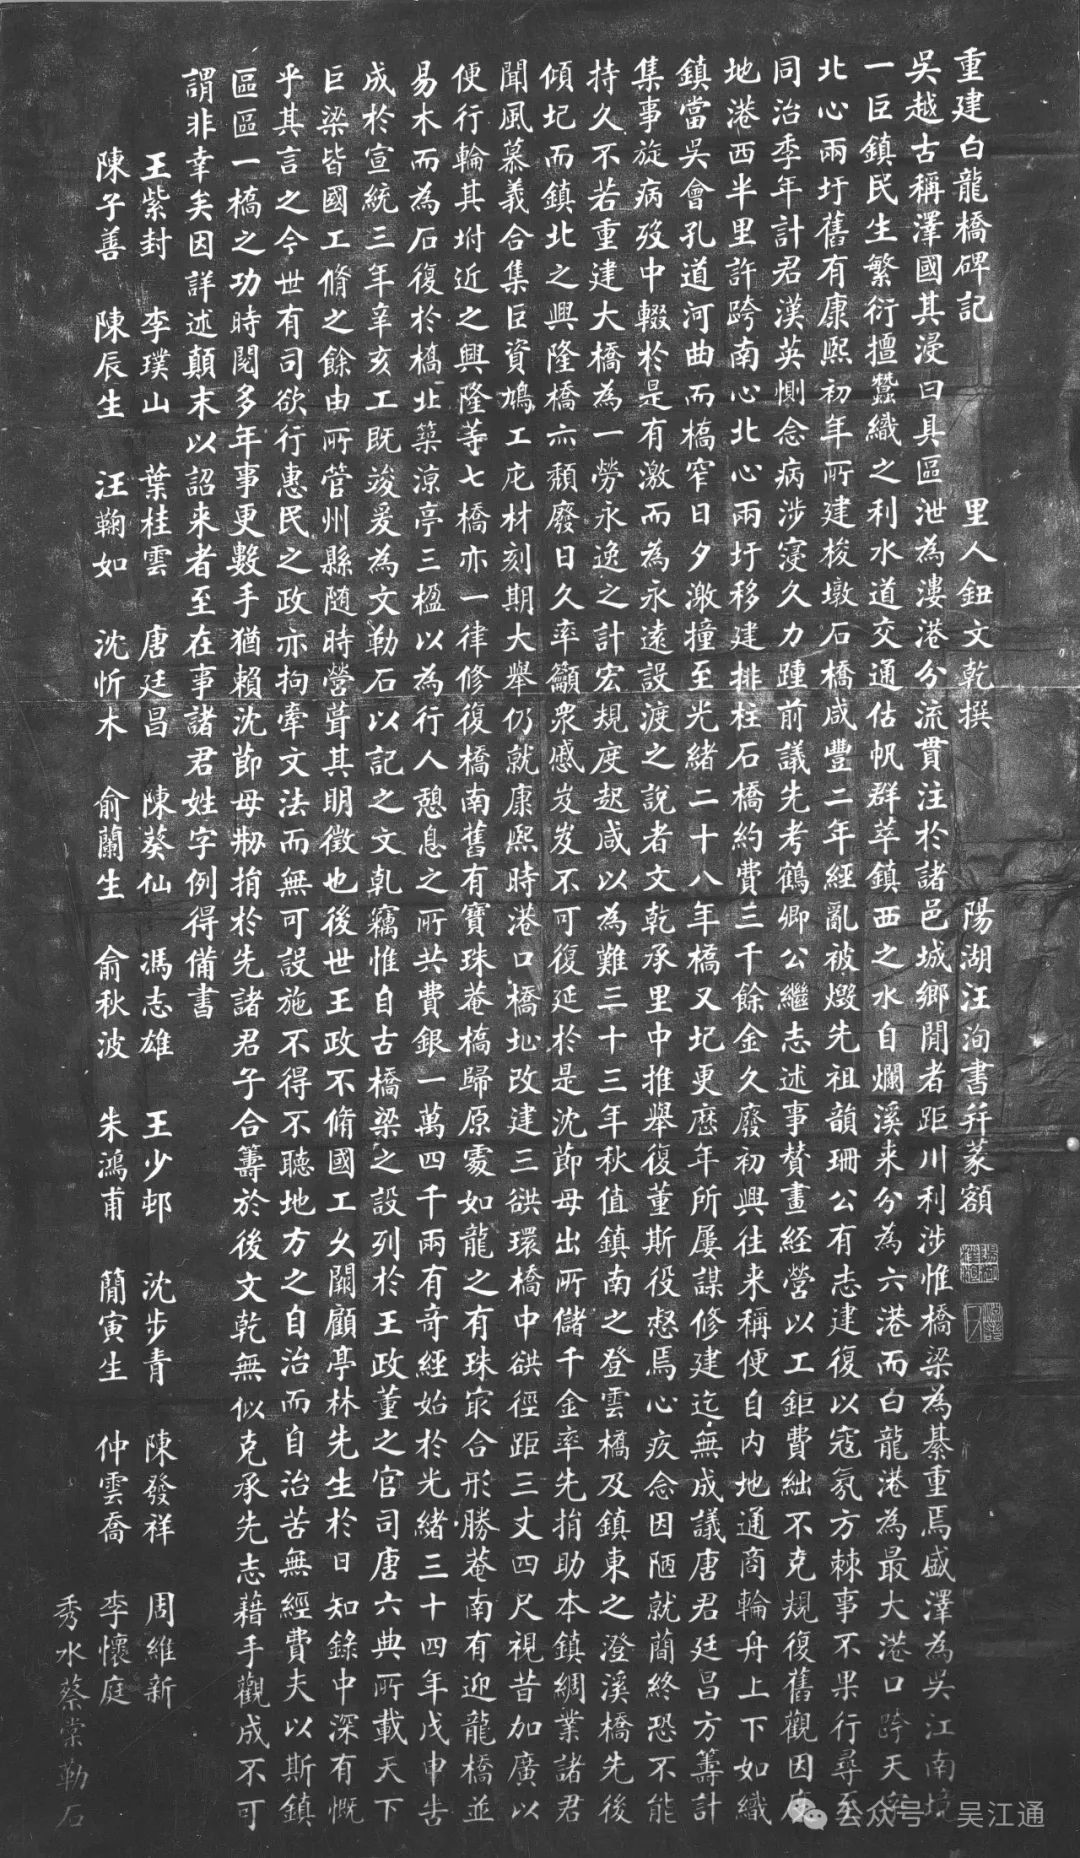 重建白龍橋碑記　里人鈕文乾撰　陽湖汪洵書并篆額
吳越古稱澤國其浸曰具區泄為漊港分流貫注於諸邑城鄉閒者距川利涉惟橋梁為綦重焉盛澤為吳江南境
一巨鎮民生繁衍擅蠶織之利水道交通估帆群萃鎮西之水自爛溪来分為六港而白龍港為最大港口跨天字
北心兩圩舊有康熙初年所建梭墩石橋咸豐二年經亂被燬先祖韻珊公有志建復以寇氛方棘事不果行尋至
同治季年計君漢英惻念病涉寖久力踵前議先考鶴卿公繼志述事贊畫経營以工鉅費絀不克規復舊觀因度
地港西半里許跨南心北心兩圩移建排柱石橋約費三千餘金久廢初興往来稱便自内地通商輪舟上下如織
鎮當吳會孔道河曲而橋窄日夕激撞至光緒二十八年橋又圮更歷年所屢謀修建迄無成議唐君廷昌方籌計
集事旋病歿中輟於是有激而為永遠設渡之說者文乾承里中推舉復董斯役惄焉心疚念因陋就蕳終恐不能
持久不若重建大橋為一勞永逸之計宏規度起咸以為難三十三年秋值鎮南之登雲橋及鎮東之澄溪橋先後
傾圮而鎮北之興隆橋亦頹廢日久率籲衆慼岌岌不可復延於是沈節母出所儲千金率先捐助本鎮綢業諸君
聞風慕義合集巨資鳩工庀材刻期大舉仍就康熙時港口橋址改建三谼環橋中谼徑距三丈四尺視昔加廣以
便行輪其坿近之興隆等七橋亦一律修復橋南舊有寶珠菴橋歸原處如龍之有珠㝡合形勝菴南有迎龍橋並
易木而為石復於橋北築涼亭三楹以為行人憩息之所共費銀一萬四千兩有奇經始於光緒三十四年戊申告
成於宣統三年辛亥工既竣爰為文勒石以記之文乹竊惟自古橋梁之設列於王政董之官司唐六典所載天下
巨梁皆國工脩之餘由所管州縣随時營葺其明徵也後世王政不脩國工久闕顧亭林先生於日知錄中深有慨
乎其言之今世有司欲行惠民之政亦拘牽文法而無可設施不得不聽地方之自治而自治苦無經費夫以斯鎮
區區一橋之功時閱多年事更數手猶賴沈節母刱捐於先諸君子合籌於後文乾無似克承先志藉手觀成不可
謂非幸矣因詳述顛末以詔来者至在事諸君姓字例得備書
王紫封　李璞山　葉桂雲　唐廷昌　陳葵仙　馮志雄　王少邨　沈步青　陳發祥　周維新
陳子善　陳辰生　汪鞠如　沈忻木　俞蘭生　俞秋波　朱鴻甫　簡寅生　仲雲喬　李懷庭
秀水蔡棠勒石
公众号 吴江通